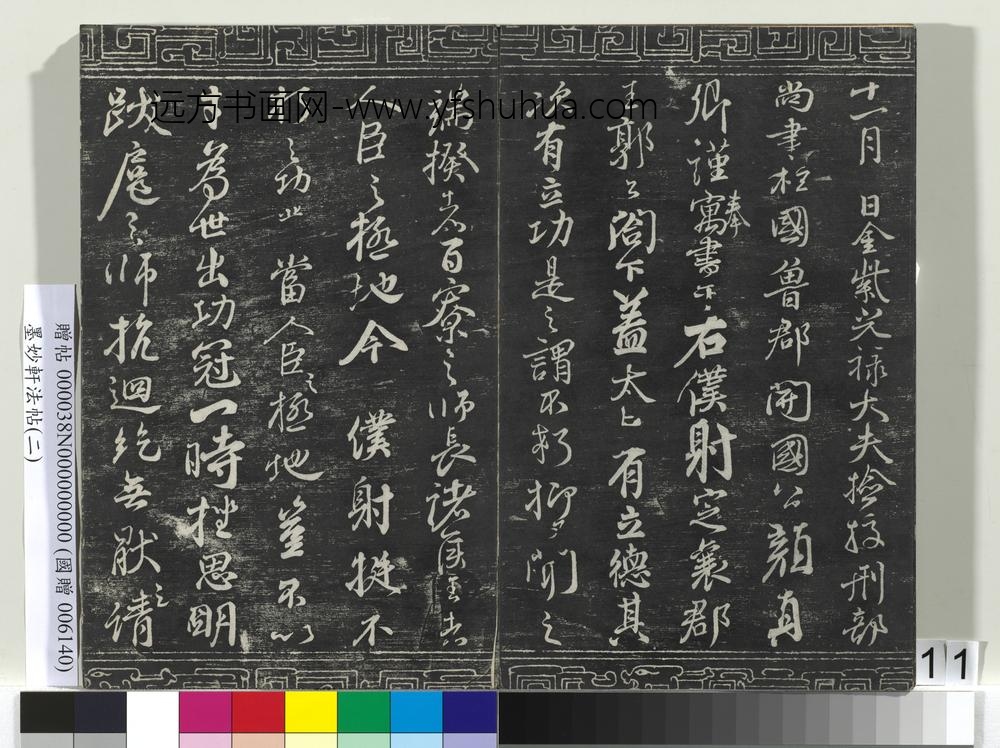 十一月日金紫光禄大夫撿挍刑部
尚書柱國魯郡開國公顔真
卿謹奉寓書于右僕射定襄郡
王郭公閤下蓋太上有立德其
次有立功是之謂不朽抑又聞之
端揆者百寮之師長諸侯王者
人臣之極地今僕射挺不
朽之功業當人臣之極地豈不以
才為世出功冠一時挫思明
跋扈之師抗迴紇無厭之請
远方书画网-www.yfshuhua.com
贈帖 000038N000000000 (國贈 006140)
墨妙軒法帖(二)
11